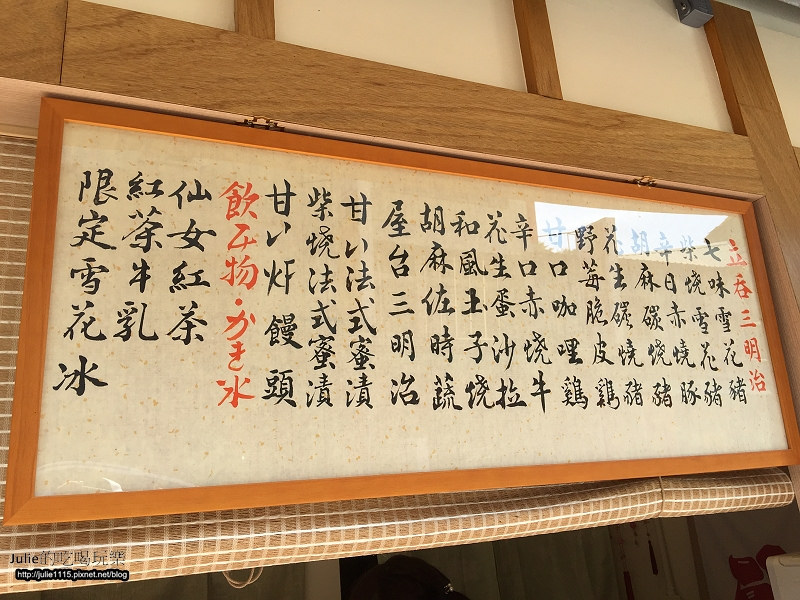 立呑三明治
七味雪花豬
柴燒雪花豬
辛口赤燒豚
胡麻碳燒豬
花生碳燒豬
野莓脆皮雞
一口咖哩鷄
辛口赤燒牛
花生蛋沙拉
和風玉子燒
胡麻佐時蔬
屋台三明治
甘い法式蜜漬
柴燒法式蜜漬
甘い炸饅頭
飲み物・かき氷
仙女紅茶
紅茶牛乳
限定雪花冰
Julie的吃喝玩樂
http://julie1115.pixnet.net/blog